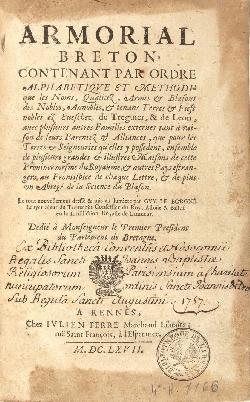 ARMORIAL
BRETON,
CONTENANT PAR ORDRE
ALPHABETIQVE ET METHODI-
que les Noms, Qualitez, Armes & Blasons
des Nobles, Annoblis, & tenans Terres & Fiefs
nobles és Eveschez de Treguier, & de Leon,
avec plusieurs autres Familles externes tant à rai-
son de leurs Parentez & Alliances, que pour les
Terres & Seigneuries qu'elles y possedent, ensemble
de plusieurs grandes & illustres Maisons de cette
Province mesme du Royaume, & autres Pays estran-
gers, au Frontispice de chaque Lettre, & de plus
un Abregé de la Science du Blason.
Le tout nouvellement dressé & mis en lumiere par GUY LE BORGNE
Dedié à Monseigneur le Premier President
du Parlement de Bretagne.
Ex Bibliotheca
Regalis Sancti
Sub Regula Sancti Augustini 1757.
A RENNES,
Chez IVLIEN FERRE Marchand Libraire,
ruë Saint François, à l'Esperance.
M. DC. LXVII.